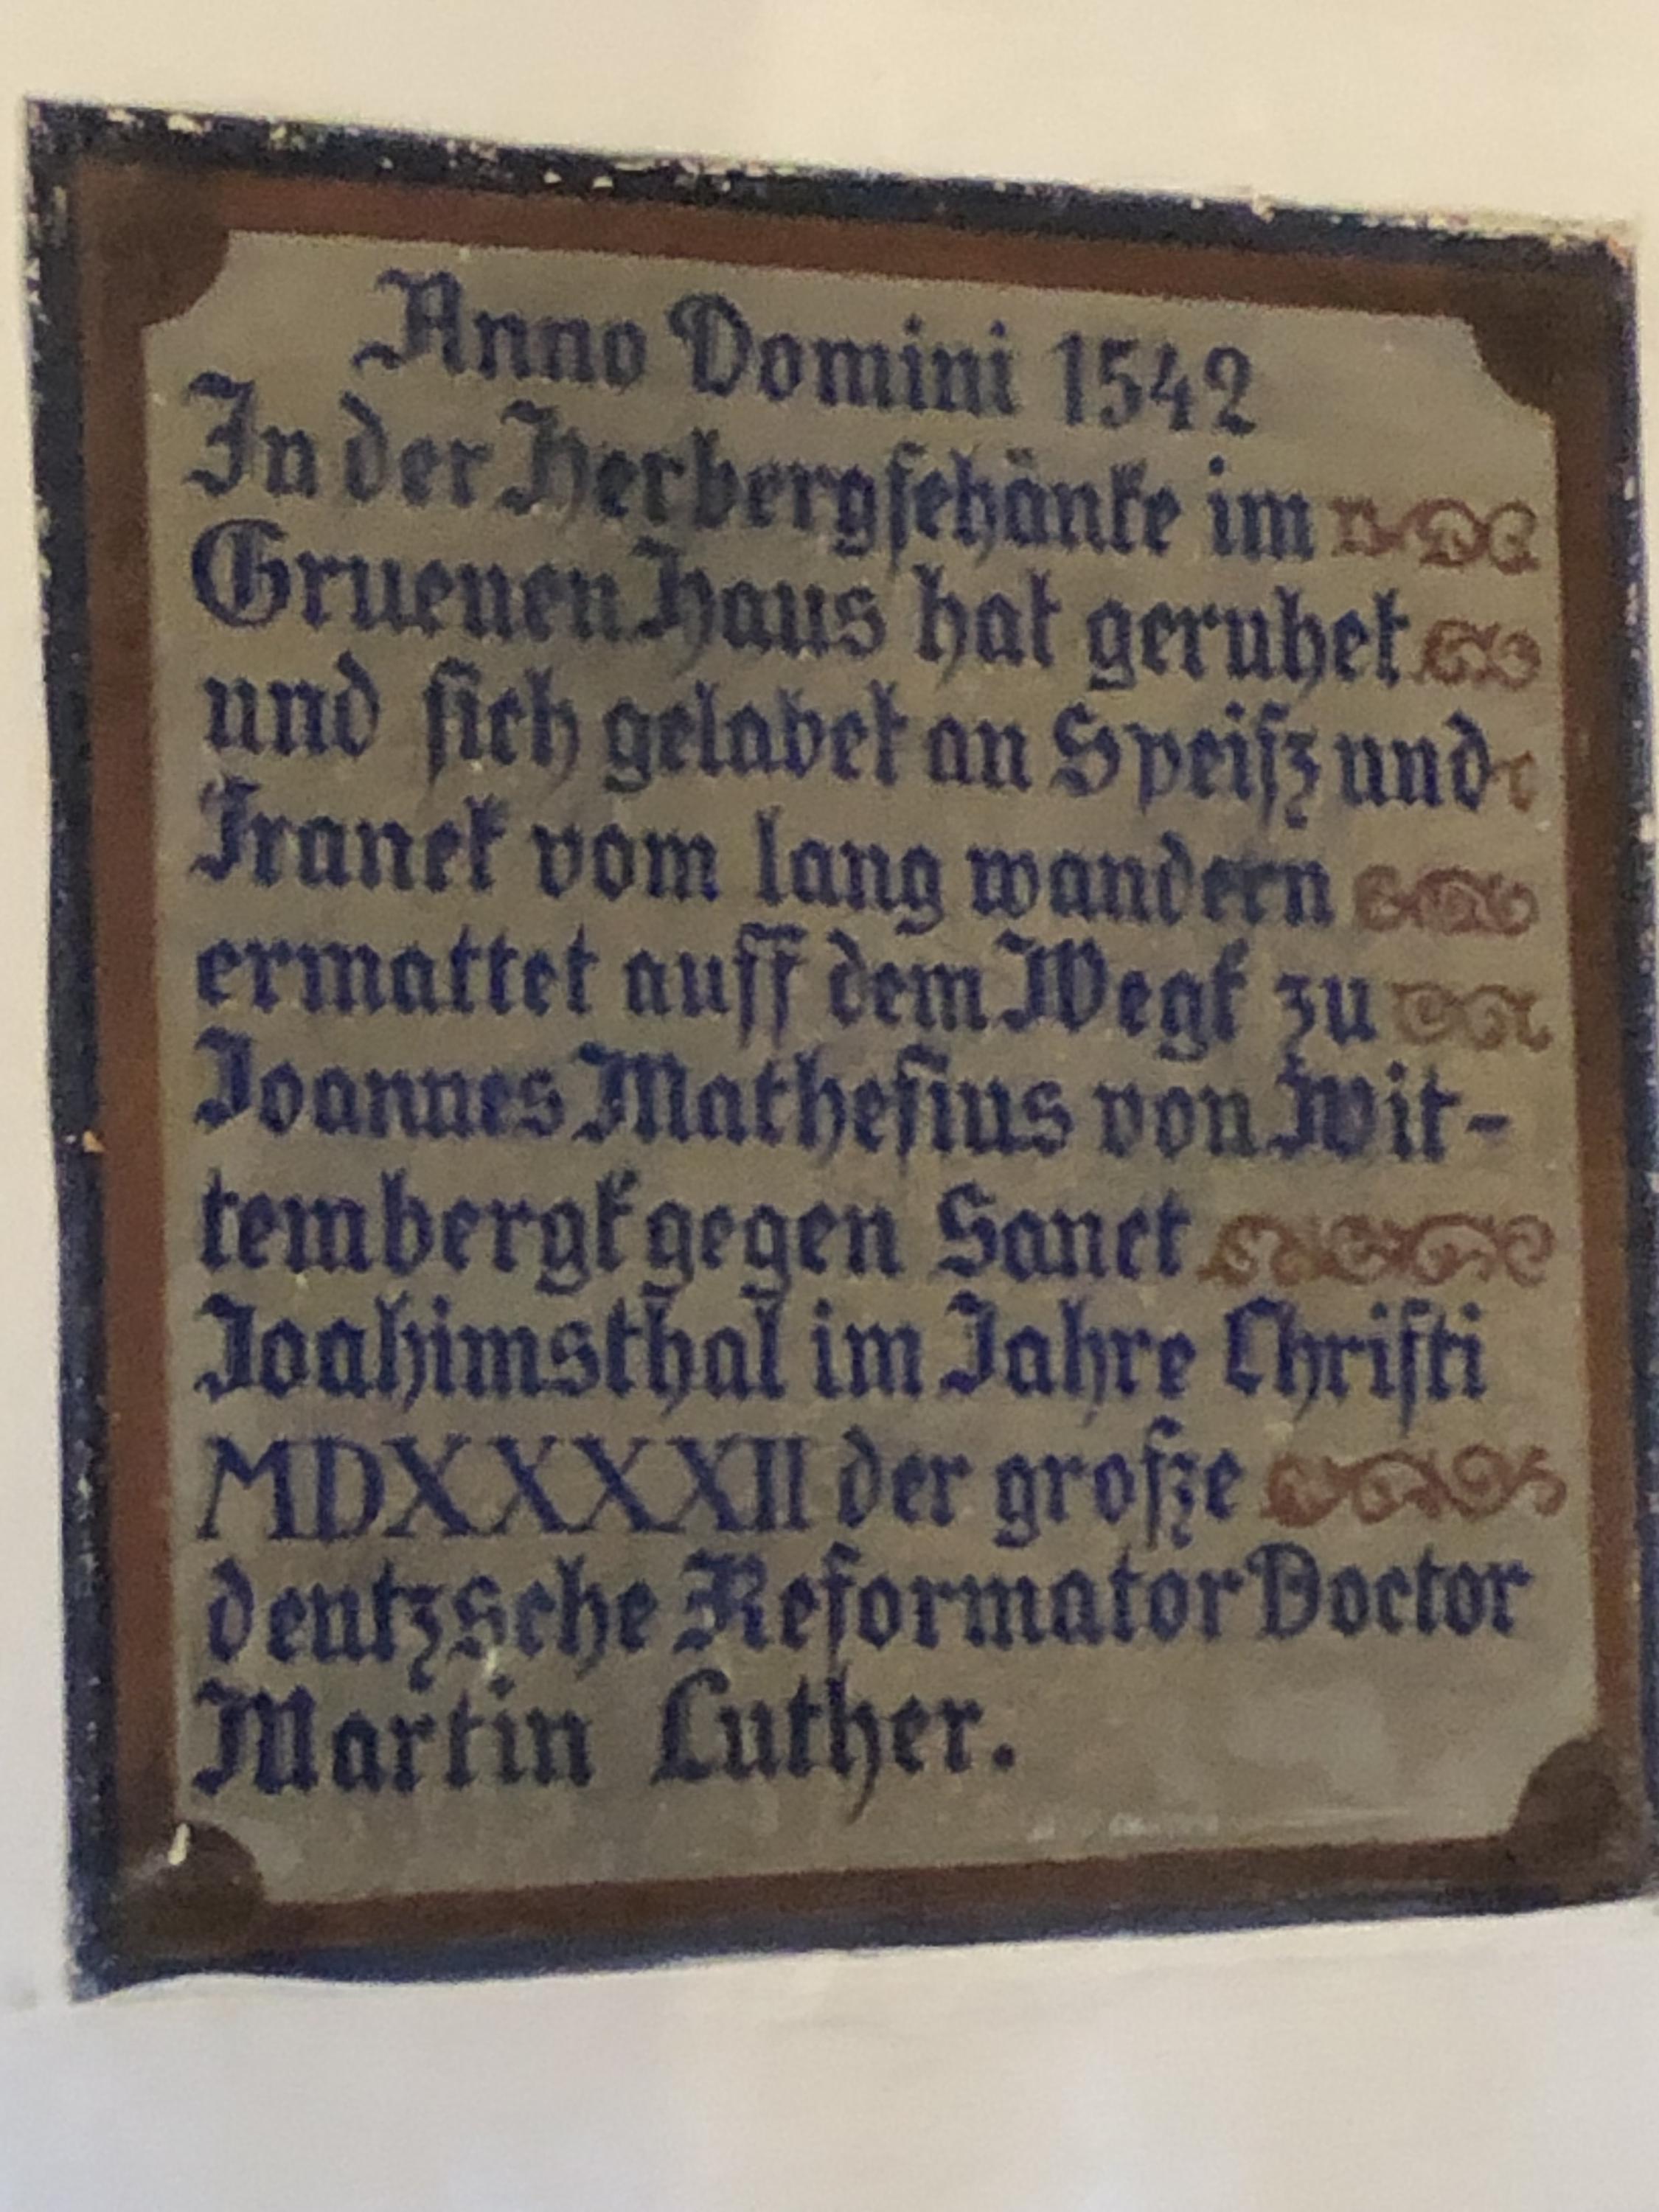 Anno Domini 1542
In der Herbergschänke im
Gruenen Haus hat geruhet
und sich gelabet an Speisz und
Tranck vom lang wandern
ermattet auff dem Wegk zu
Joannes Mathesius von Wit-
tembergk gegen Sanct
Joahimsthal im Jahre Christi
MDXXXXII der grosze
deutzsche Reformator Doctor
Martin Luther.